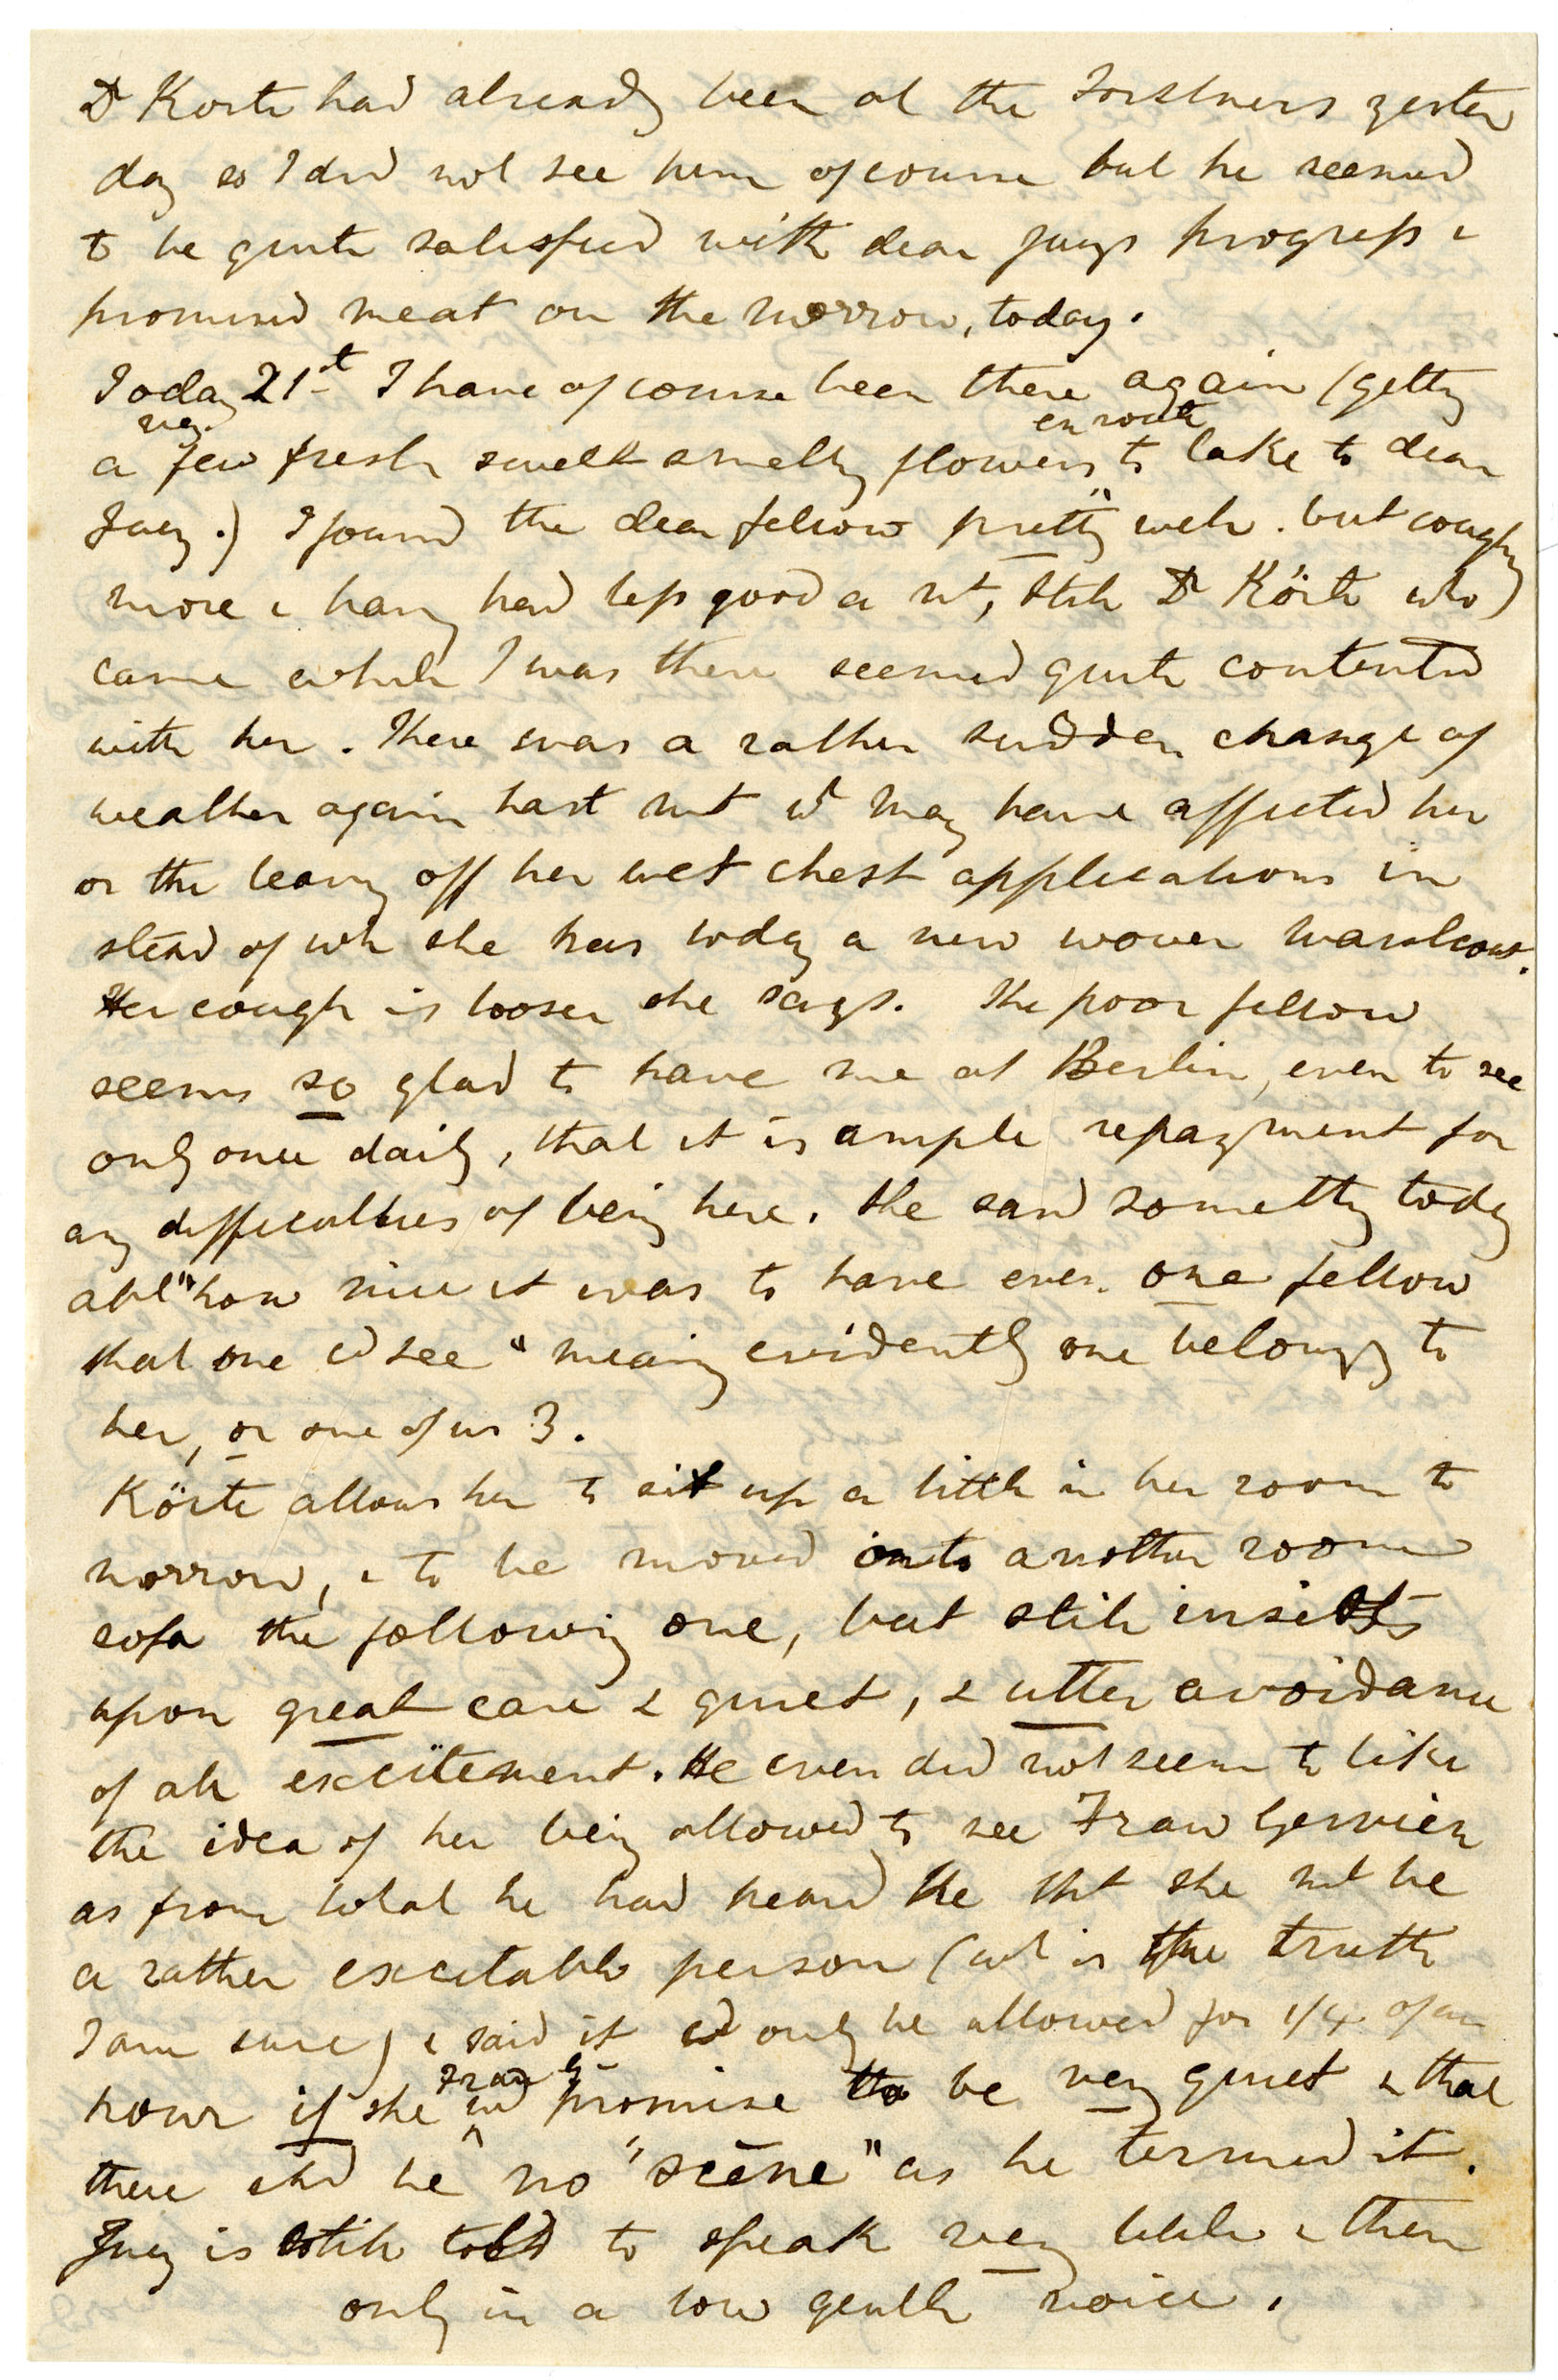 Dr Körte had already been at the Forstners yester
day so I did not see him of course but he seemed
to be quite satisfied with dear Jucy's progress &
promised meat on the morrow, today.
Today 21st I have of course been there again (gettg
a very few fresh sweet smellg flowers en route to take to dear
Jucy.) I found the dear fellow "pretty" well. but coughg
more & havg had less good a nt, still Dr Körte who
came while I was there seemed quite contented
with her. There was a rather sudden change of
weather again last nt wh may have affected her
or the leavg off her wet chest applications in
stead of wh she has today a new woven
Her cough is looser she says. The poor fellow
seems so glad to have me at Berlin, even to see
only once daily, that it is ample repayment for
any difficulties of being here. She said somethg today
abt "how nice it was to have even one fellow
that one cd see" meaing evidently one belongg to
her, or one of us 3.
Körte allows her to sit up a little in her room to
morrow, & to be moved onto another room
sofa the following one, but still insists
upon great care & quiet, & utter avoidance
of all excitement. He even did not seem to like
the idea of her being allowed to see Frau
as from what he had heard he tht she mt be
a rather excitable person (wh is the truth
I am sure) & said it cd only be allowed for 1/4 of an
hour if she Frau G wd promise to be very quiet & that
there shd be no "scène" as he termed it.
Jucy is still told to speak very little & then
only in a low gentle voice.